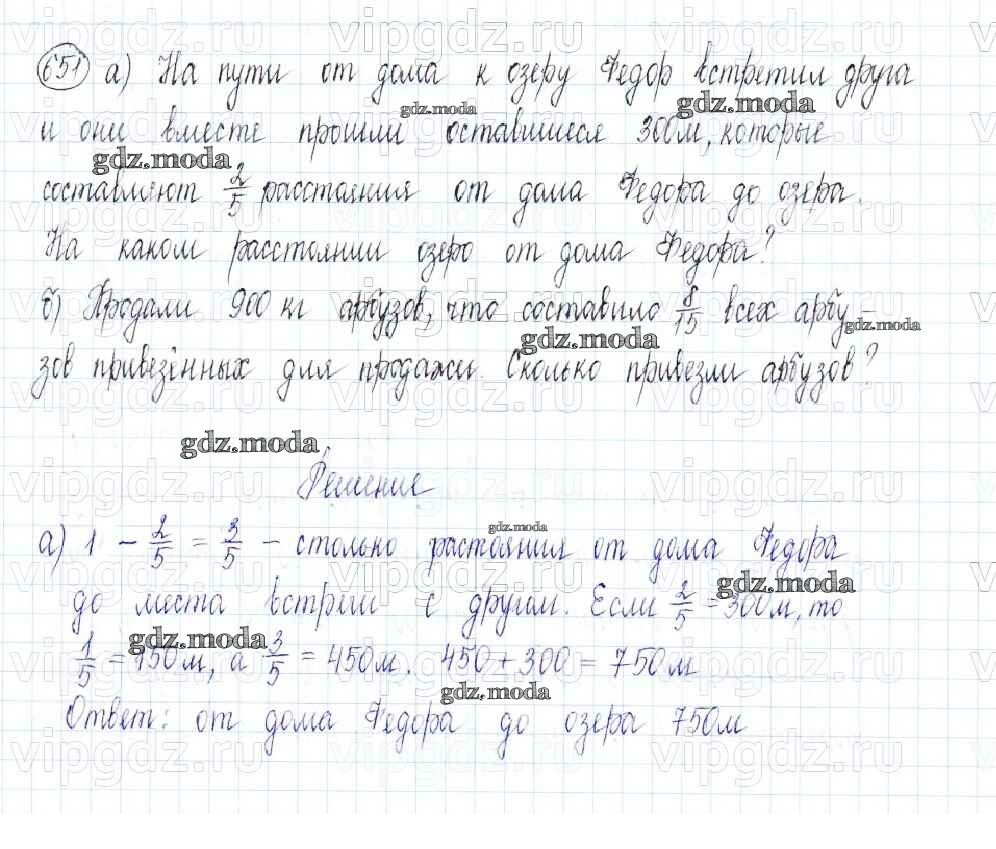 651 а) На пути от дома к озеру Федор встретил друга
и они вместе прошли оставшиеся 300м, которые
составляют 2/5 расстояния от дома Федора до озера.
На каком расстоянии озеро от дома Федора?
б) Продали 900 кг арбузов, что составило 8/15 всех арбу-
зов привезённых для продажи. Сколько привезли арбузов?
Решение
а) 1 - 2/5 = 3/5 - столько растояния от дома Федора
до места встречи с другом. Если 2/5 = 300м, то
1/5 = 150м, а 3/5 = 450м. 450 + 300 = 750м
Ответ: от дома Федора до озера 750м
vipgdz.ru
gdz.moda